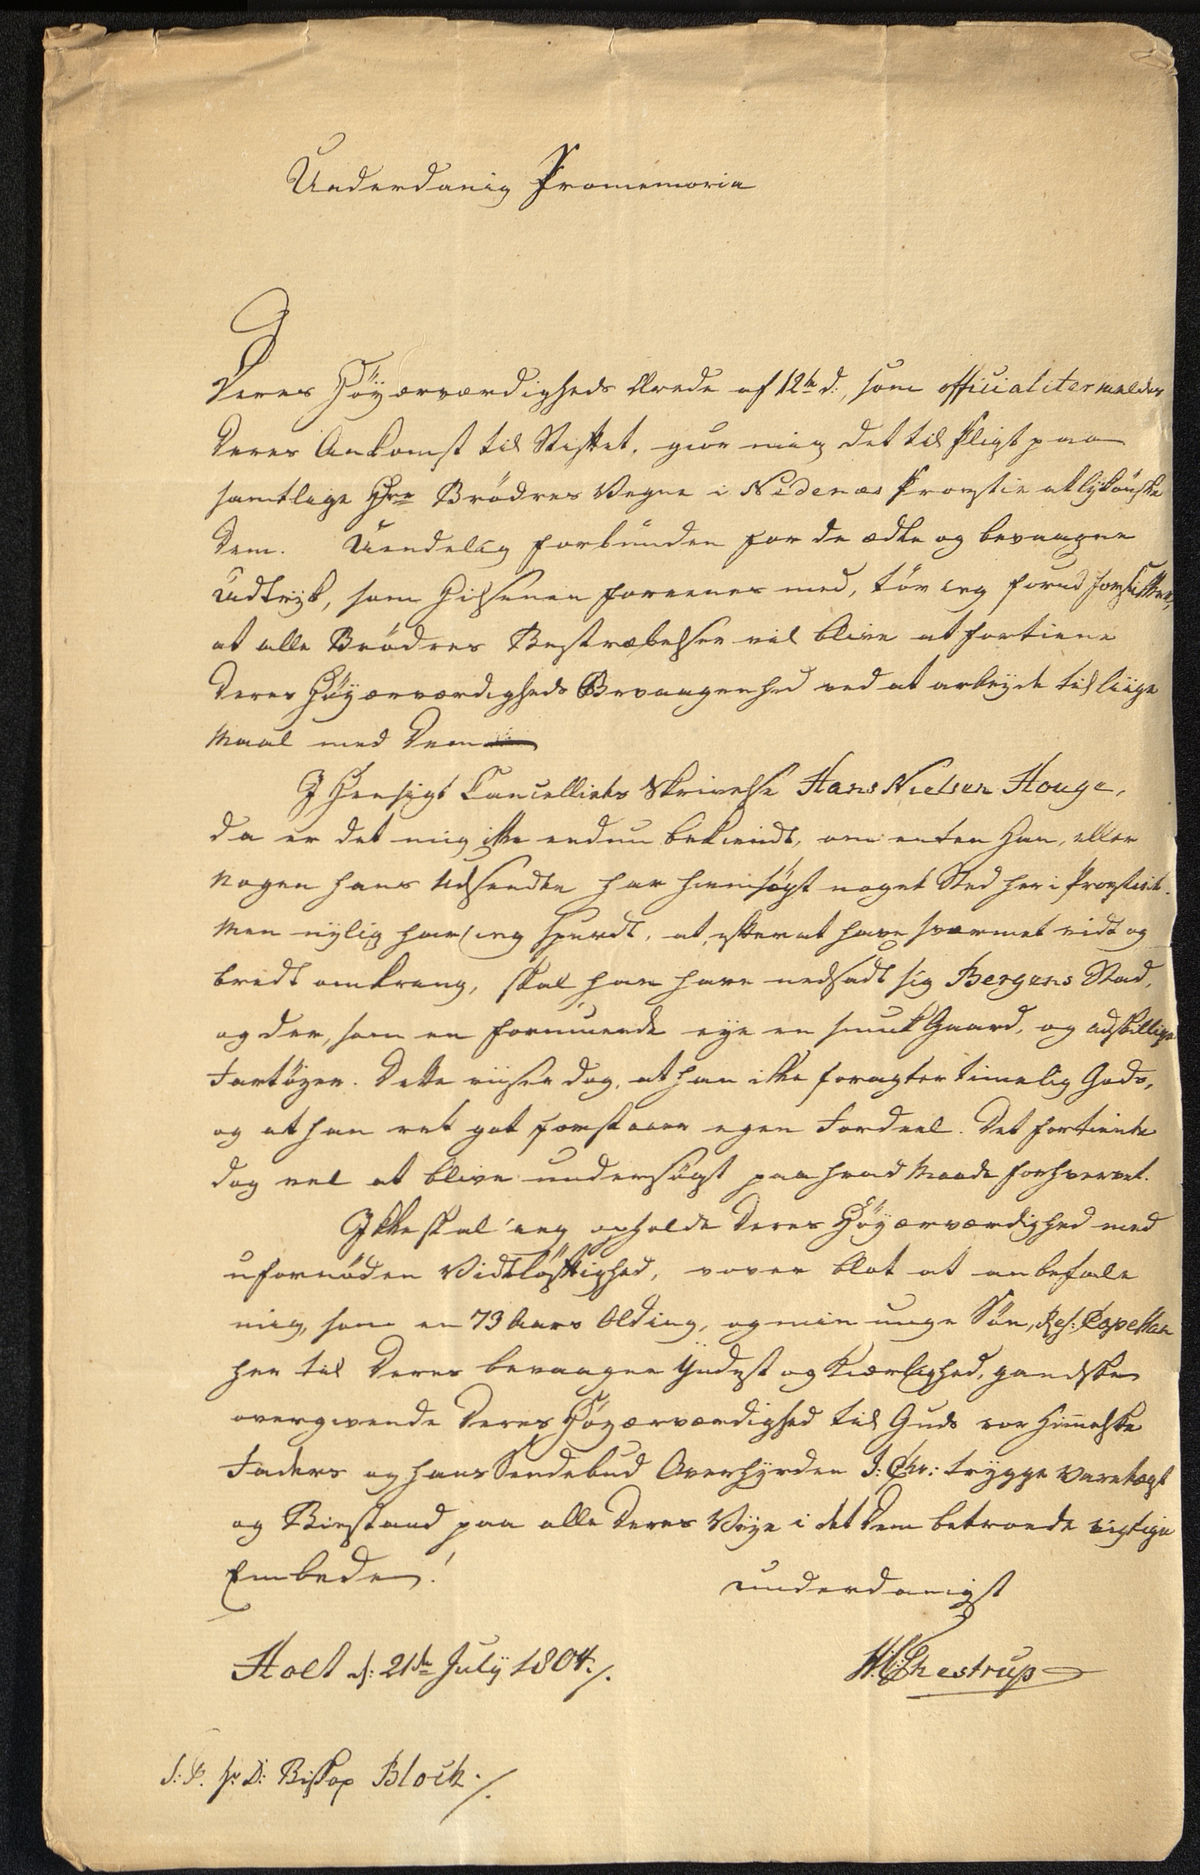 Underdanig Promemoria
Deres Höÿærværdigheds Ærede af 12te d:, som officialiter melder
Deres Ankomst til Stiftet, giør mig det til Pligt paa
samtlige Hrr Brödres Vegne i Nedenæs Provstie at lykønske
Dem. Uendelig forbunden for de ædle og bevaagne
Udtryk, som Hilsenen forenes med, tör ieg forud forsikkre,
at alle Brödres Bestræbelser vil blive at fortiene
Deres Höÿærværdigheds Bevaagenhed ved at arbeÿde til liige
Maal med Dem
I Hensigt Cancelliets Skrivelse Hans Nielsen Houge,
da er det mig ikke endnu bekiendt, om enten Han, eller
Nogen hans Udsendte har hiemsögt noget Sted her i Provstiet.
Men nylig har ieg spurdt, at, efter at have sværmet vidt og
bredt omkrang, skal han have nedsadt sig Bergens Stad,
og der, som en formuende eÿe en smuk Gaard, og adskillige
Fartöÿer. Dette viiser dog, at han ikke foragter timelig Gods,
og at han ret got forstaaer egen Fordeel. Det fortiente
dog vel at blive undersögt paa hvad Maade forhvervet.
Ikke skal ieg opholde Deres Höÿærværdighed med
ufornöden Vidtlöftighed, vover blot at anbefale
mig, som en 73 Aars Olding, og min unge Sön, Res: Capellan
her til Deres bevaagne Yndest og Kiærlighed, gandske
overgivende Deres Höÿærværdighed til Guds vor Himmelske
Faders og hans Sendebud Overhÿrden J: Chr: trygge Varetægt
og Biestand paa alle Deres Veÿe i det Dem betroede vigtige
Embede!
underdanigst
Holt d: 21de Julÿ 1804 ./.
Hestrup
S: T. Hr D: Biskop Bloch ./.